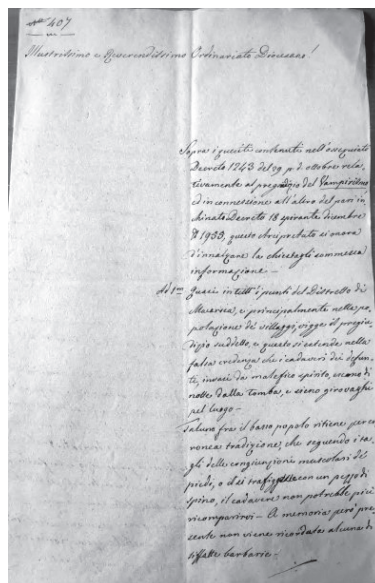 407
Illustrissimo e Reverendissimo Ordinariato Diocesano!
Sopra i quesiti contenuti nell'ossequiato
Decreto 1243 del 29 p. d. ottobre rela_
tivamente al pregiudizio del Vampirismo
ed in connessione all'altro del pari in_
chinato Decreto 18 spirante dicembre
N 1933, questo Arcipretato si onora
d'innalzare la chiestagli sommessa
informazione._
Ad 1mo Quasi in tutti i punti del Distretto di
Macarsca, e principalmente nella po_
polazione de' villaggi, vigge il pregiu_
dizio suddetto, e questo si estende nella
falsa credenza che i cadaveri dei defun_
ti, invasi da malefico spirito, escano di
notte dalla tomba, e sieno girovaghi
pel luogo._
Taluno fra il basso popolo ritiene per er_
ronea tradizione, che seguendo i ta_
gli delle congiunzioni muscolari dei
piedi, o di si trafiggesse con un pezzo di
spino, il cadavere non potrebbe più
ricomparirvi._ A memoria però pre_
sente non viene ricordata alcuna di
siffatte barbarie._